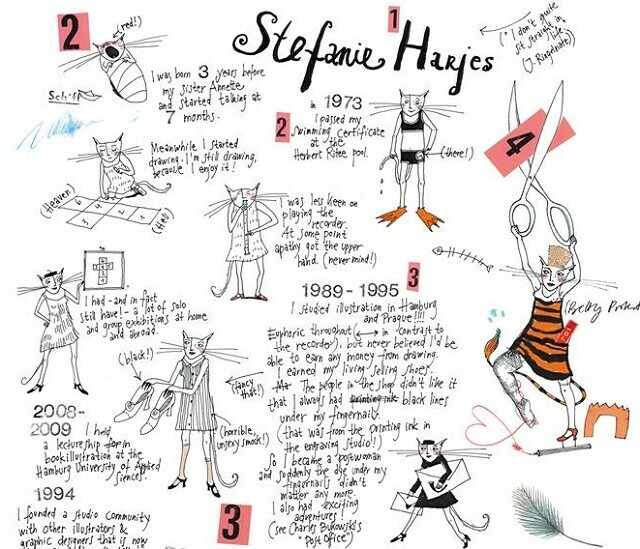 1
Stefanie Harjes
(* I don't quite
sit straight in
life
(J. Ringelnatz))
2
(red!)
Schiff
I was born 3 years before
my sister Annette
and started talking at
7 months.
in 1973
2 I passed my
swimming certificate
at the
Herbert Ritee pool.
(there!)
4
Meanwhile I started
drawing. I'm still drawing,
because I enjoy it!
(Heaven)
(Hell)
I was less keen on
playing the
recorder.
At some point
apathy got the upper
hand. (never mind!)
I had - and in fact
still have! - a lot of solo
and group exhibitions at home
and abroad.
3
1989-1995
I studied illustration in Hamburg
and Prague!!!!
Euphoric throughout (↔ in contrast to
the recorder), but never believed I'd be
able to earn any money from drawing.
I earned my living selling shoes.
Ma- The people in the shop didn't like it
that I always had printing ink black lines
under my fingernails.
(that was from the printing ink in
the engraving studio!)
So I became a postwoman
and suddenly the dye under my
fingernails didn't
matter any more.
I also had exciting
adventures!
(see Charles Bukowski's
"Post Office")
(black!)
(fancy
that!)
(horrible,
unsexy smock!)
Pretty
2008-
2009 I held
a lectureship for in
bookillustration at the
Hamburg University of Applied
Siences.
1994
I founded a studio community
with other illustrators &
graphic designers that is now
3